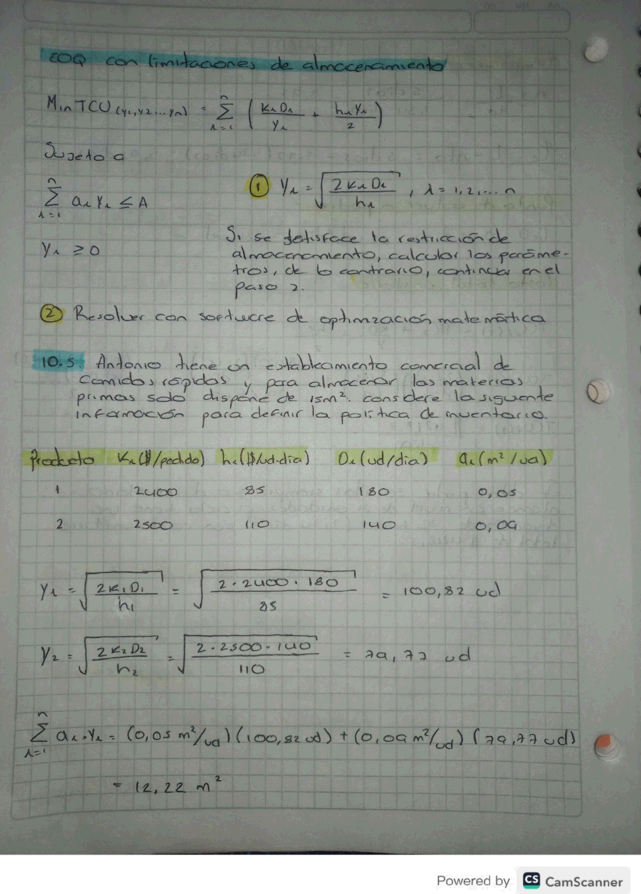 EOQ con limitaciones de almacenamiento
Min TCU (y1, y2 ... yn) = n Σ i=1 ( KiDi / yi + hiYi / 2 )
Sujeto a
n Σ i=1 ai Yi ≤ A
① Yi = √ 2KiDi / hi , i = 1, 2, ... n
Yi ≥ 0
Si se satisface la restricción de
almacenamiento, calcular los paráme-
tros, de lo contrario, continuar en el
paso 2.
② Resolver con software de optimización matemática
10.5 Antonio tiene un establecimiento comercial de
comidas rápidas y para almacenar las materias
primas solo dispone de 15m². considere la siguiente
información para definir la política de inventario.
Producto Ki($/pedido) hi($/ud-día) Di(ud/día) ai(m²/ud)
1 2400 85 180 0,05
2 2500 110 140 0,09
Yi = √ 2K1D1 / h1 = √ 2·2400·180 / 85 = 100,82 ud
Y2 = √ 2K2D2 / h2 = √ 2·2500·140 / 110 = 79,77 ud
n Σ i=1 ai·Yi = (0,05 m²/ud)(100,82 ud) + (0,09 m²/ud)(79,77 ud)
= 12,22 m²
Powered by CS CamScanner